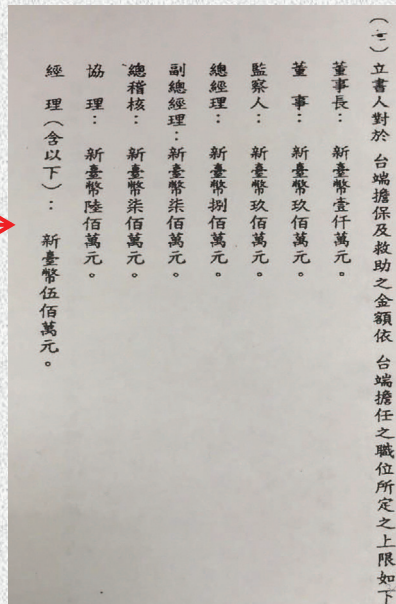 (一)立書人對於 台端擔保及救助之金額依 台端擔任之職位所定之上限如下
董事長： 新臺幣壹仟萬元。
董 事： 新臺幣玖佰萬元。
監察人： 新臺幣玖佰萬元。
總經理： 新臺幣捌佰萬元。
副總經理：新臺幣柒佰萬元。
總稽核： 新臺幣柒佰萬元。
協 理： 新臺幣陸佰萬元。
經 理(含以下)： 新臺幣伍佰萬元。